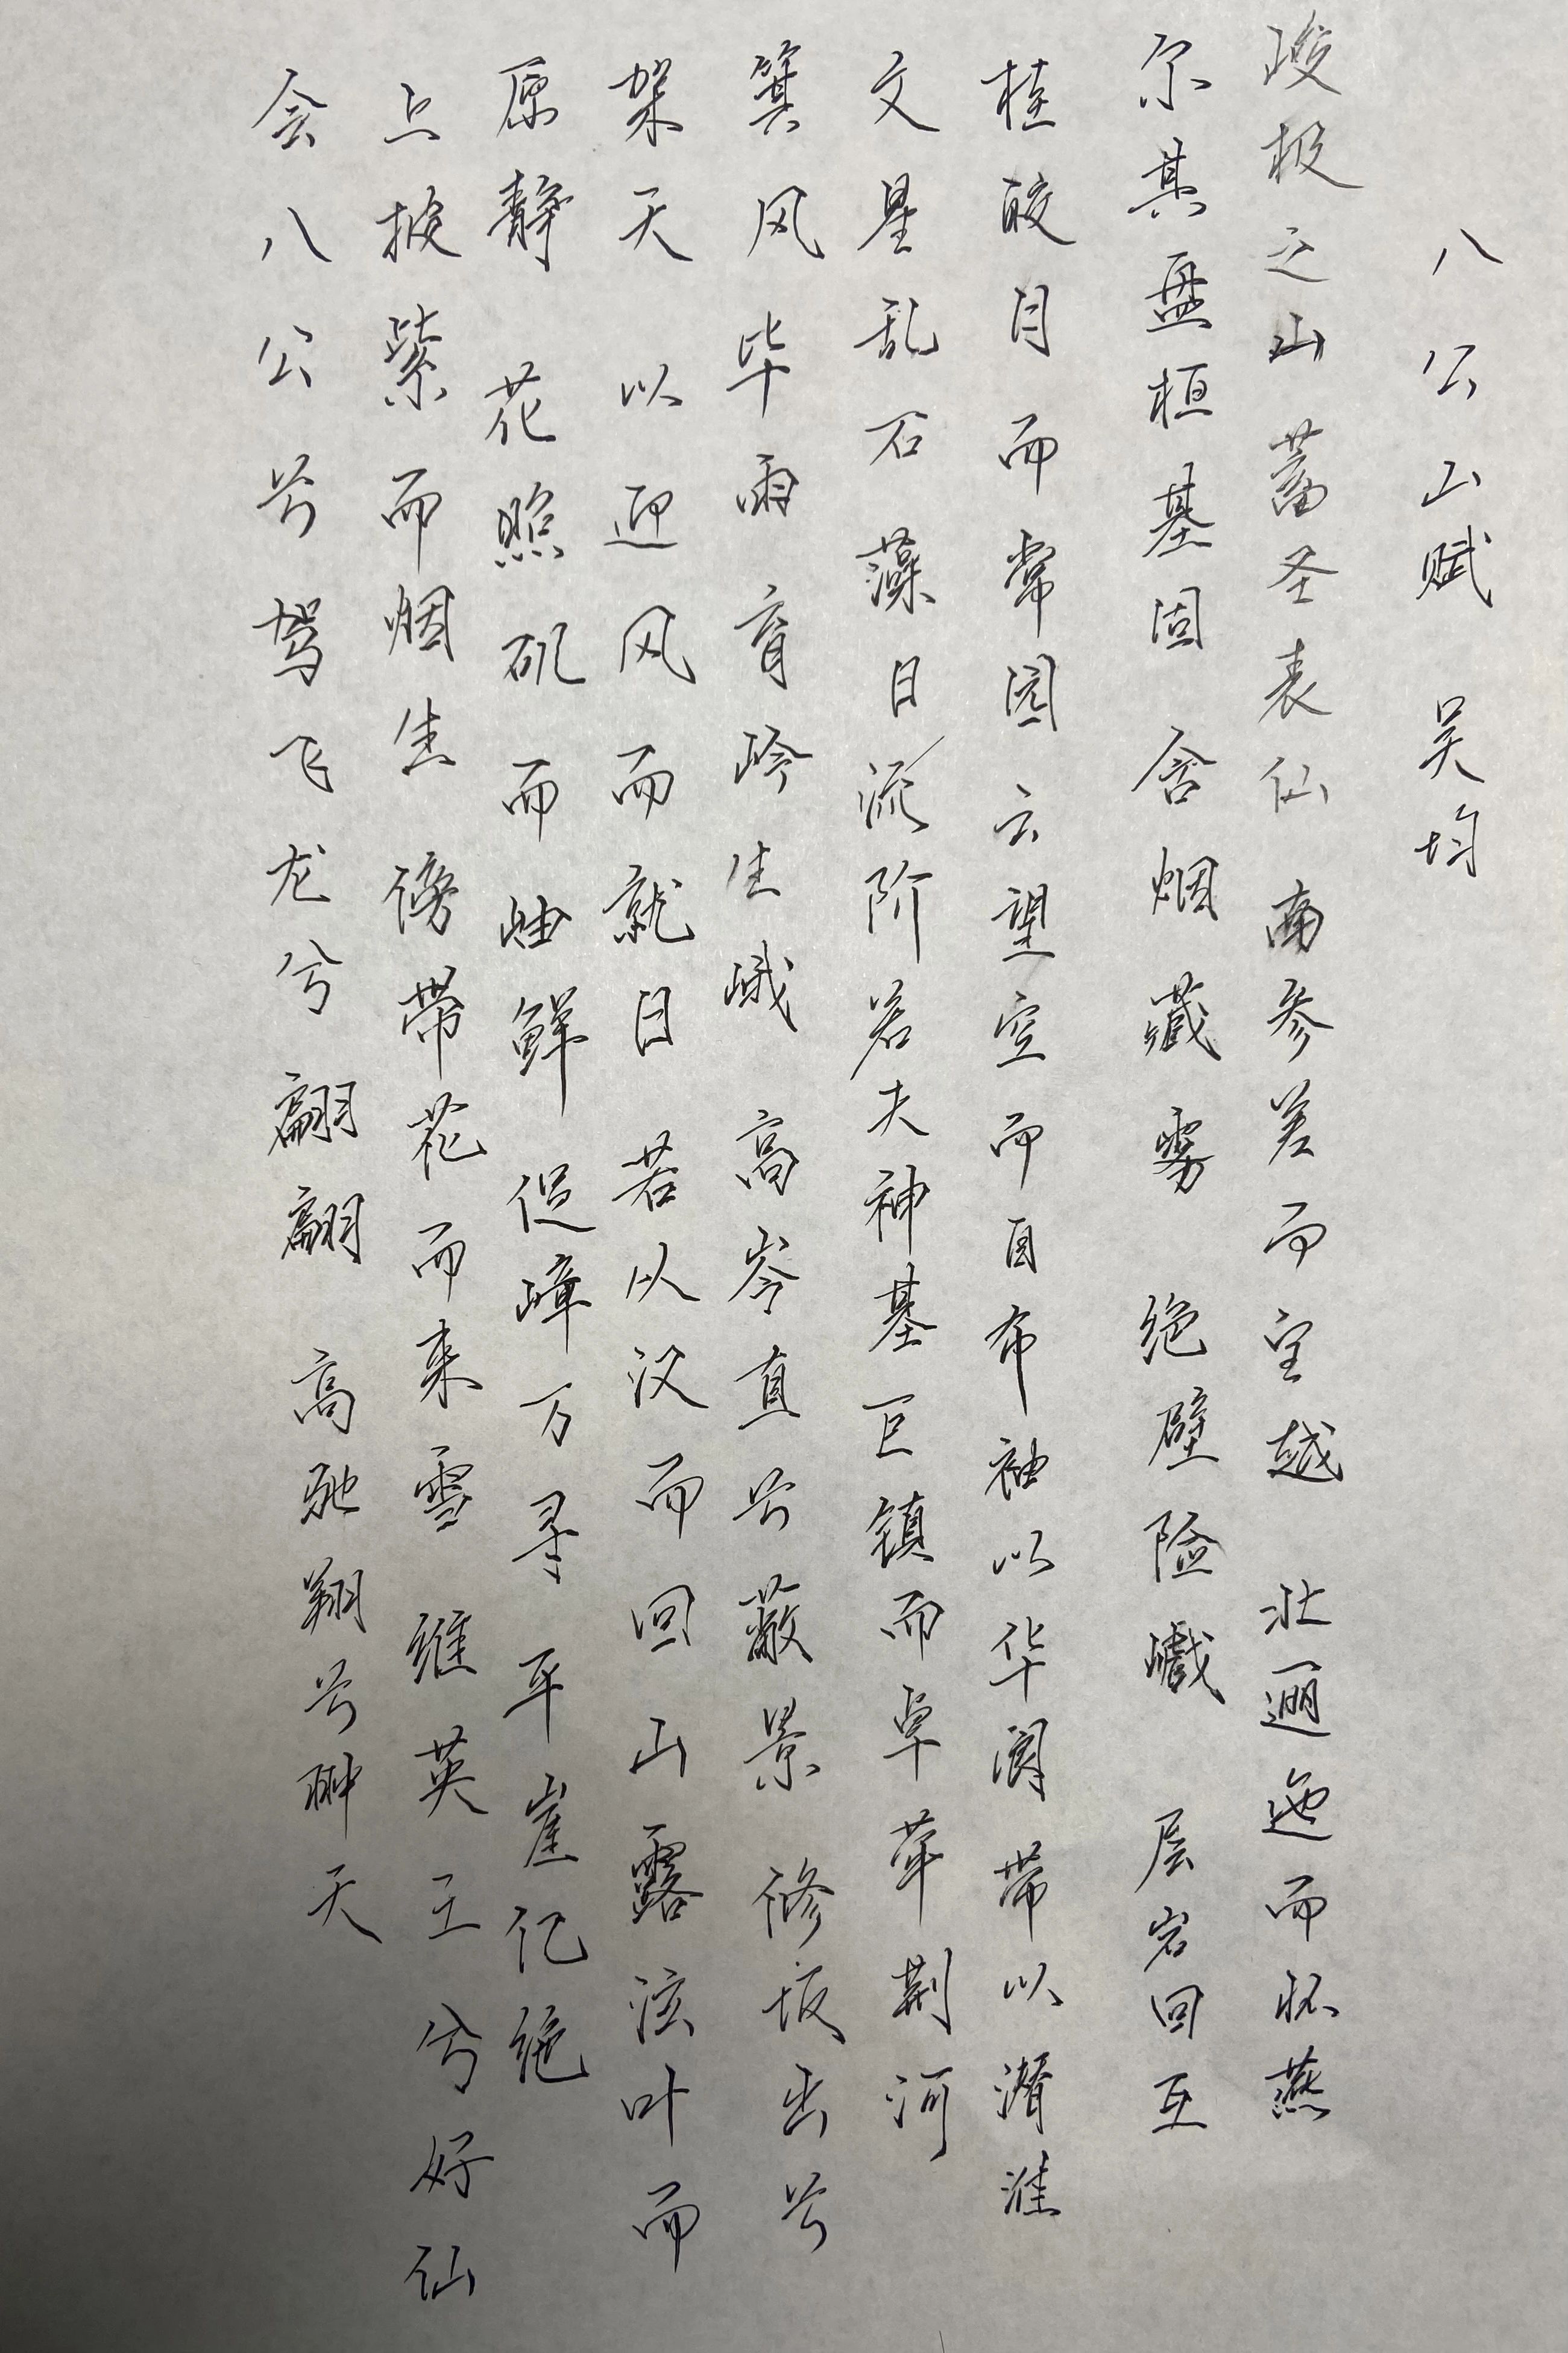 八公山赋 吴均
峻极之山 蓄圣表仙 南参差而望越 北逦迤而怀燕
尔其盘桓基固 含烟藏雾 绝壁险巇 层岩回互
桂皎月而常园 云望空而自布 袖以华阆 带以潜淮
文星乱石 藻日流阶 若夫神基巨镇 而卓荦荆河
箕风毕雨 育岭生峨 高岑直兮蔽景 修坂出兮
架天 以迎风而就日 若从汉而回山 露泫叶而
原静 花照矶而岫鲜 促嶂万寻 平崖亿绝
上披紫而烟生 傍带花而来雪 维英王兮好仙
会八公兮驾飞龙兮 翩翩 高驰翔兮翀天